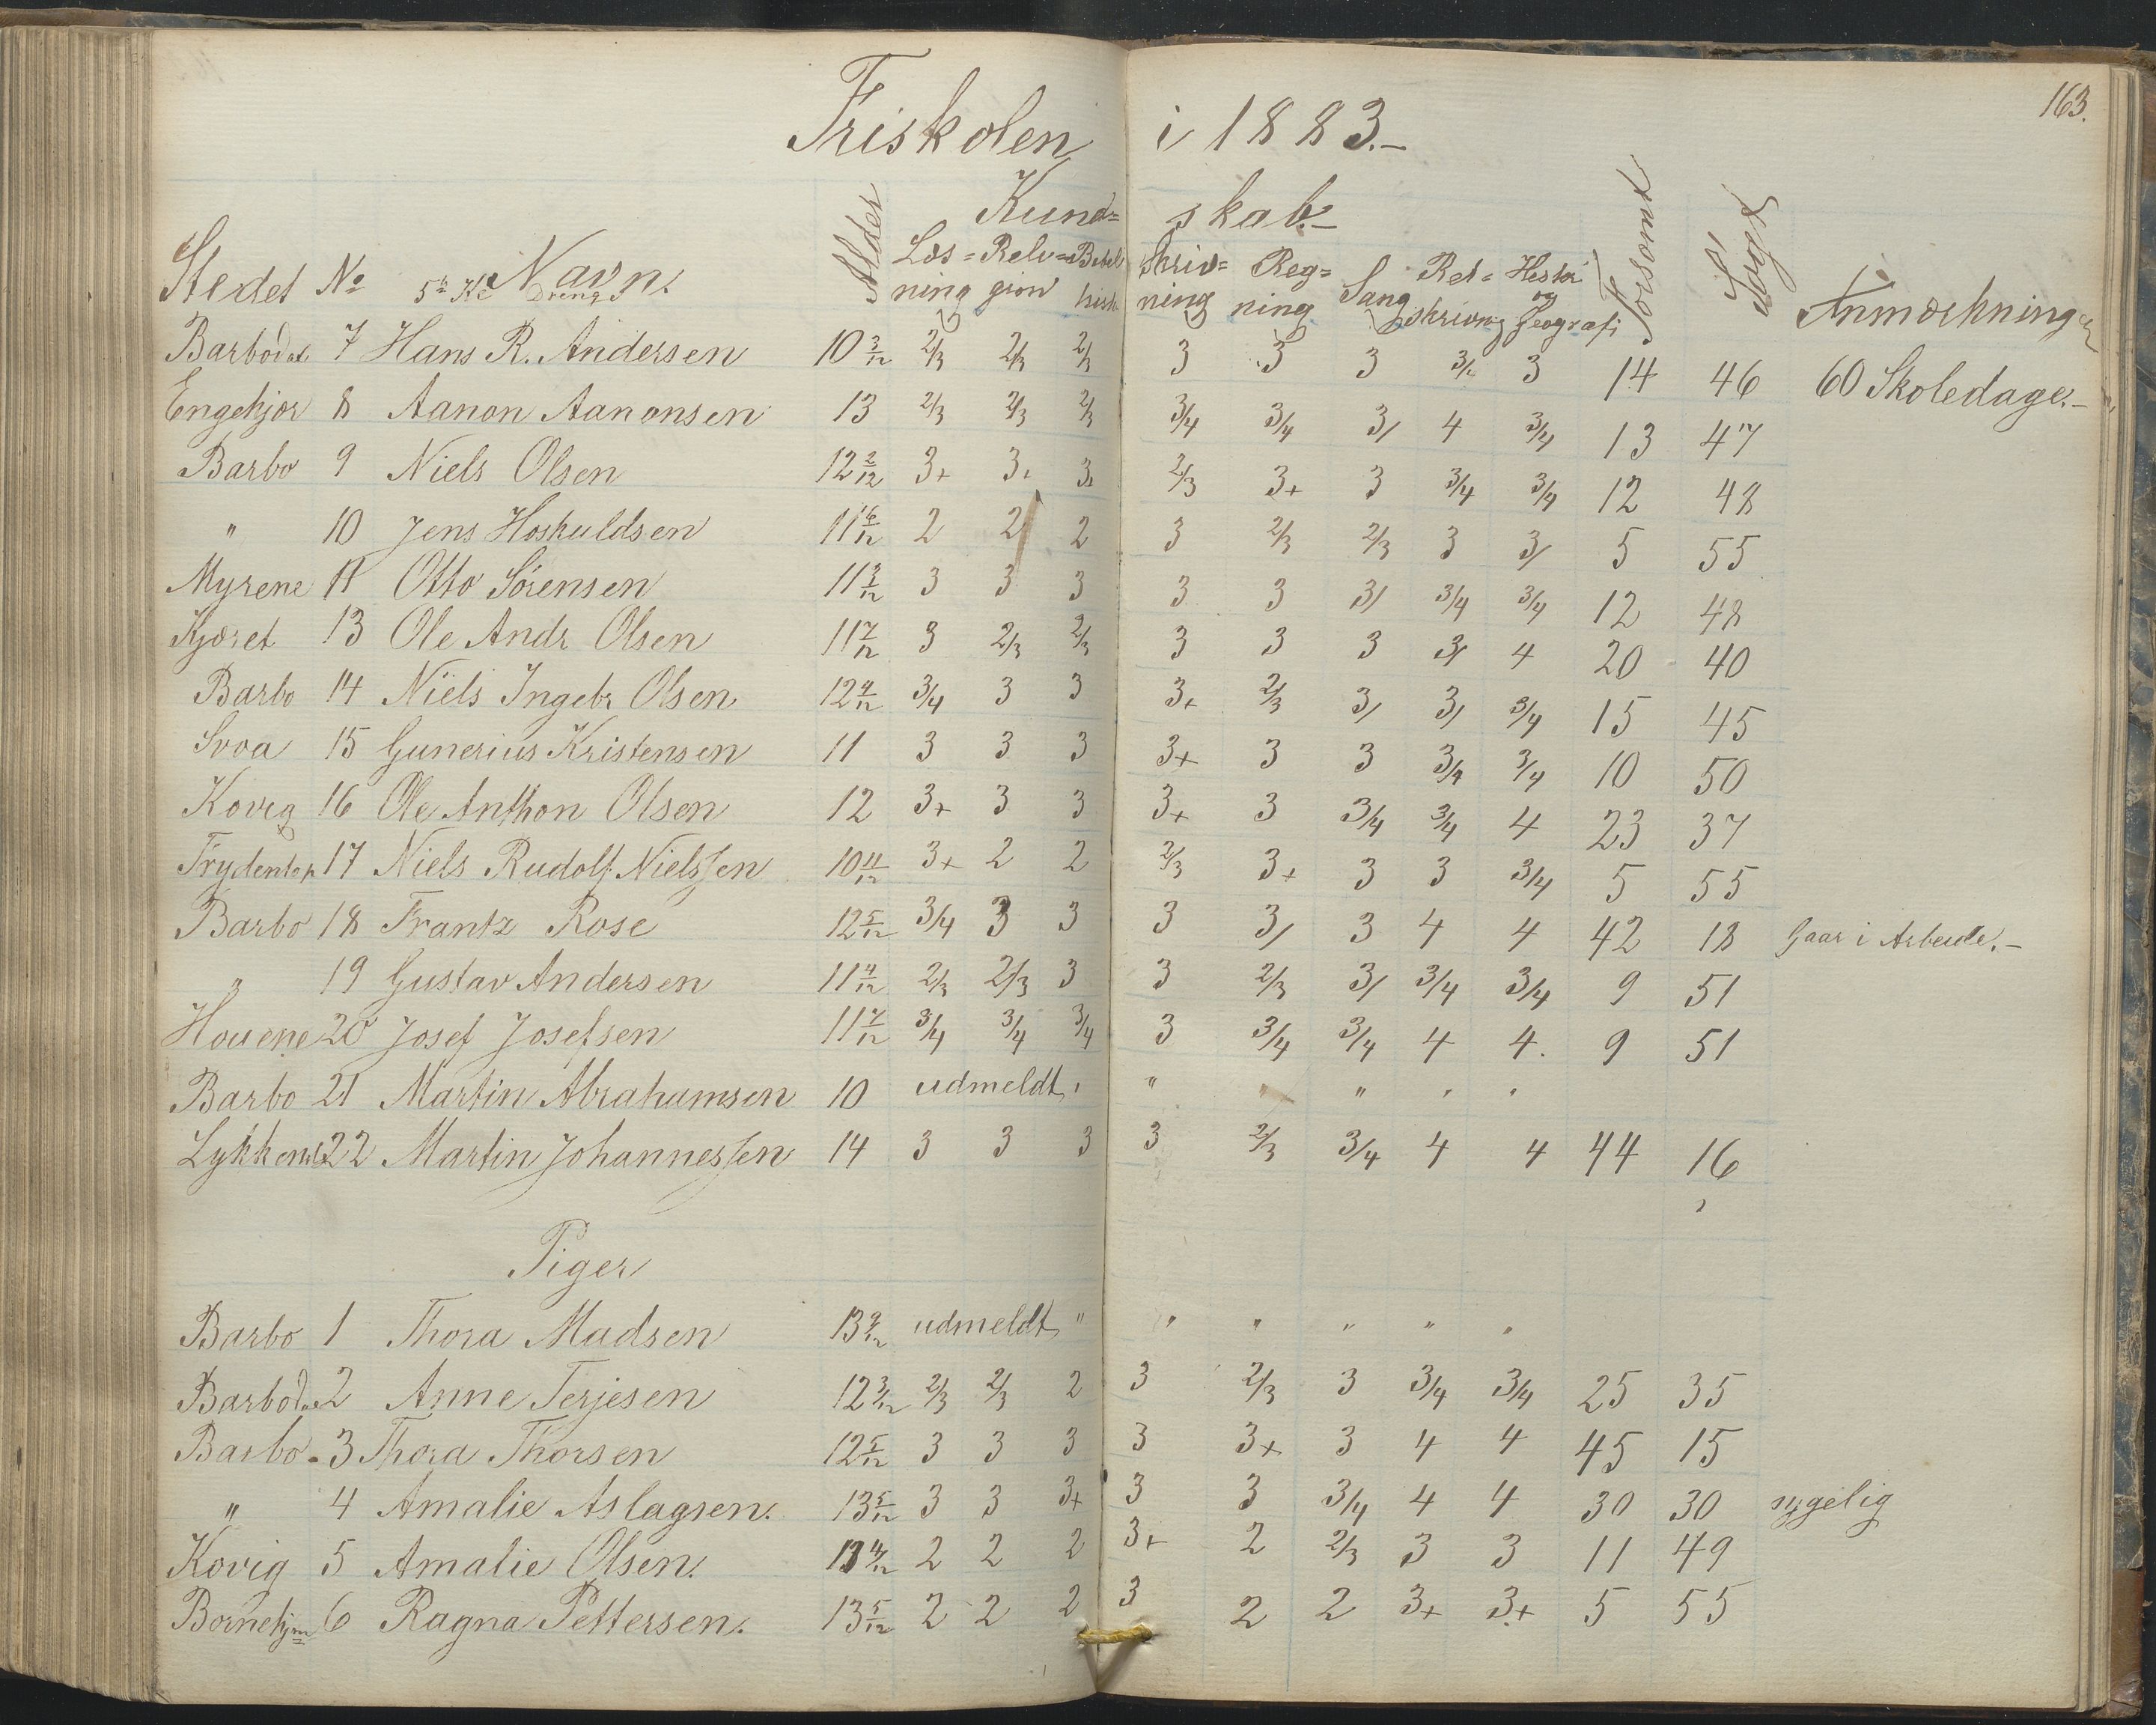 163.
Friskolen i 1883.-
Kund= skab.-
Stedet No Navn. Alder Læs= Reli= Bibel Skriv= Reg= Sang Ret= Histori Forsømt Søgt Anmærkninger
5te Kl Drenge ning gion hist. ning ning skrivng og Geografi
Barbodal 7 Hans R. Andersen 10 3/12 2/3 2/3 2/3 3 3 3 3/ 3 14 46 60 Skoledage.-
Engekjær 8 Aanon Aanonsen 13 2/3 2/3 2/3 3/4 3/4 3/ 4 3/4 13 47
Barbo 9 Niels Olsen 12 2/12 3+ 3+ 3+ 2/3 3+ 3 3/4 3/4 12 48
" 10 Jens Hoskuldsen 11 6/12 2 2 2 3 2/3 2/3 3 3/ 5 55
Myrene 11 Otto Sörensen 11 3/12 3 3 3 3 3 3/ 3/4 3/4 12 48
Kjæret 13 Ole Andr Olsen 11 7/12 3 2/3 2/3 3 3 3 3/ 4 20 40
Barbo 14 Niels Ingebr Olsen 12 4/12 3/4 3 3 3+ 2/3 3/ 3/ 3/4 15 45
Svoa 15 Gunerius Kristensen 11 3 3 3 3+ 3 3 3/4 3/4 10 50
Kovig 16 Ole Anthon Olsen 12 3+ 3 3 3+ 3 3/4 3/4 4 23 37
17 Niels Rudolf Nielssen 10 11/12 3+ 2 2 2/3 3+ 3 3 3/4 5 55
Barbo 18 Frantz Rose 12 5/12 3/4 3 3 3 3/ 3 4 4 42 18 Gaar i Arbeide.-
" 19 Gustav Andersen 11 4/12 2/3 2/3 3 3 2/3 3/ 3/4 3/4 9 51
Houene 20 Josef Josefsen 11 7/12 3/4 3/4 3/4 3 3/4 3/4 4 4. 9 51
Barbo 21 Martin Abrahamsen 10 udmeldt " " " " " "
22 Martin Johannessen 14 3 3 3 3 2/3 3/4 4 4 44 16
Piger
Barbo 1 Thora Madsen 13 9/12 udmeldt " " " " " "
Barbodal 2 Anne Terjesen 12 3/12 2/3 2/3 2 3 2/3 3 3/4 3/4 25 35
Barbo 3 Thora Thorsen 12 5/12 3 3 3 3 3+ 3 4 4 45 15
" 4 Amalie Aslagsen. 13 5/12 3 3 3+ 3 3 3/4 4 4 30 30 sygelig
Kovig 5 Amalie Olsen. 13 4/12 2 2 2 3+ 2 2/3 3 3 11 49
Börnehjm 6 Ragna Pettersen. 13 5/12 2 2 2 3 2 2 3+ 3+ 5 55